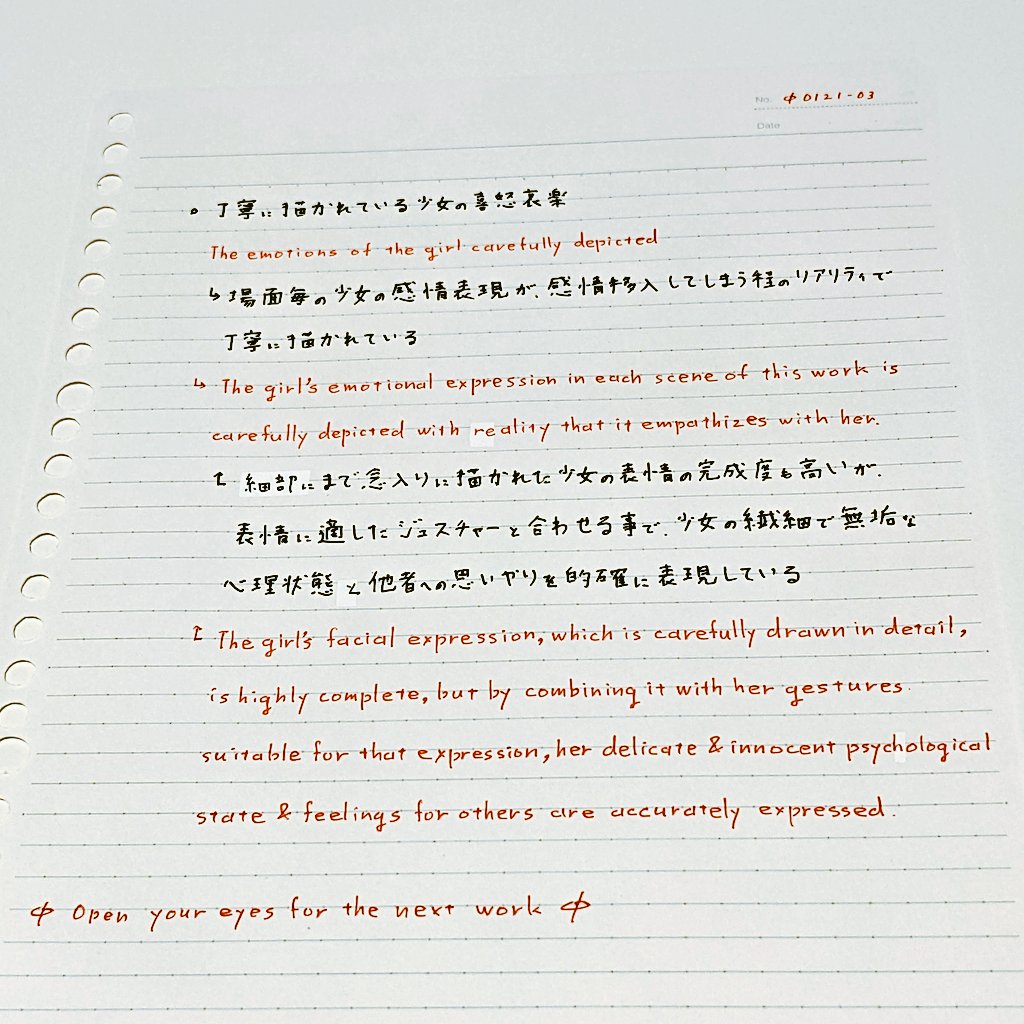 No. φ0121-03
Date
○ 丁寧に描かれている少女の喜怒哀楽
The emotions of the girl carefully depicted
↳ 場面毎の少女の感情表現が、感情移入してしまう程のリアリティで
丁寧に描かれている
↳ The girl's emotional expression in each scene of this work is
carefully depicted with reality that it empathizes with her.
↑ 細部にまで念入りに描かれた少女の表情の完成度も高いが、
表情に適したジェスチャーと合わせる事で、少女の繊細で無垢な
心理状態と他者への思いやりを的確に表現している
↑ The girl's facial expression, which is carefully drawn in detail,
is highly complete, but by combining it with her gestures
suitable for that expression, her delicate & innocent psychological
state & feelings for others are accurately expressed.
φ Open your eyes for the next work φ